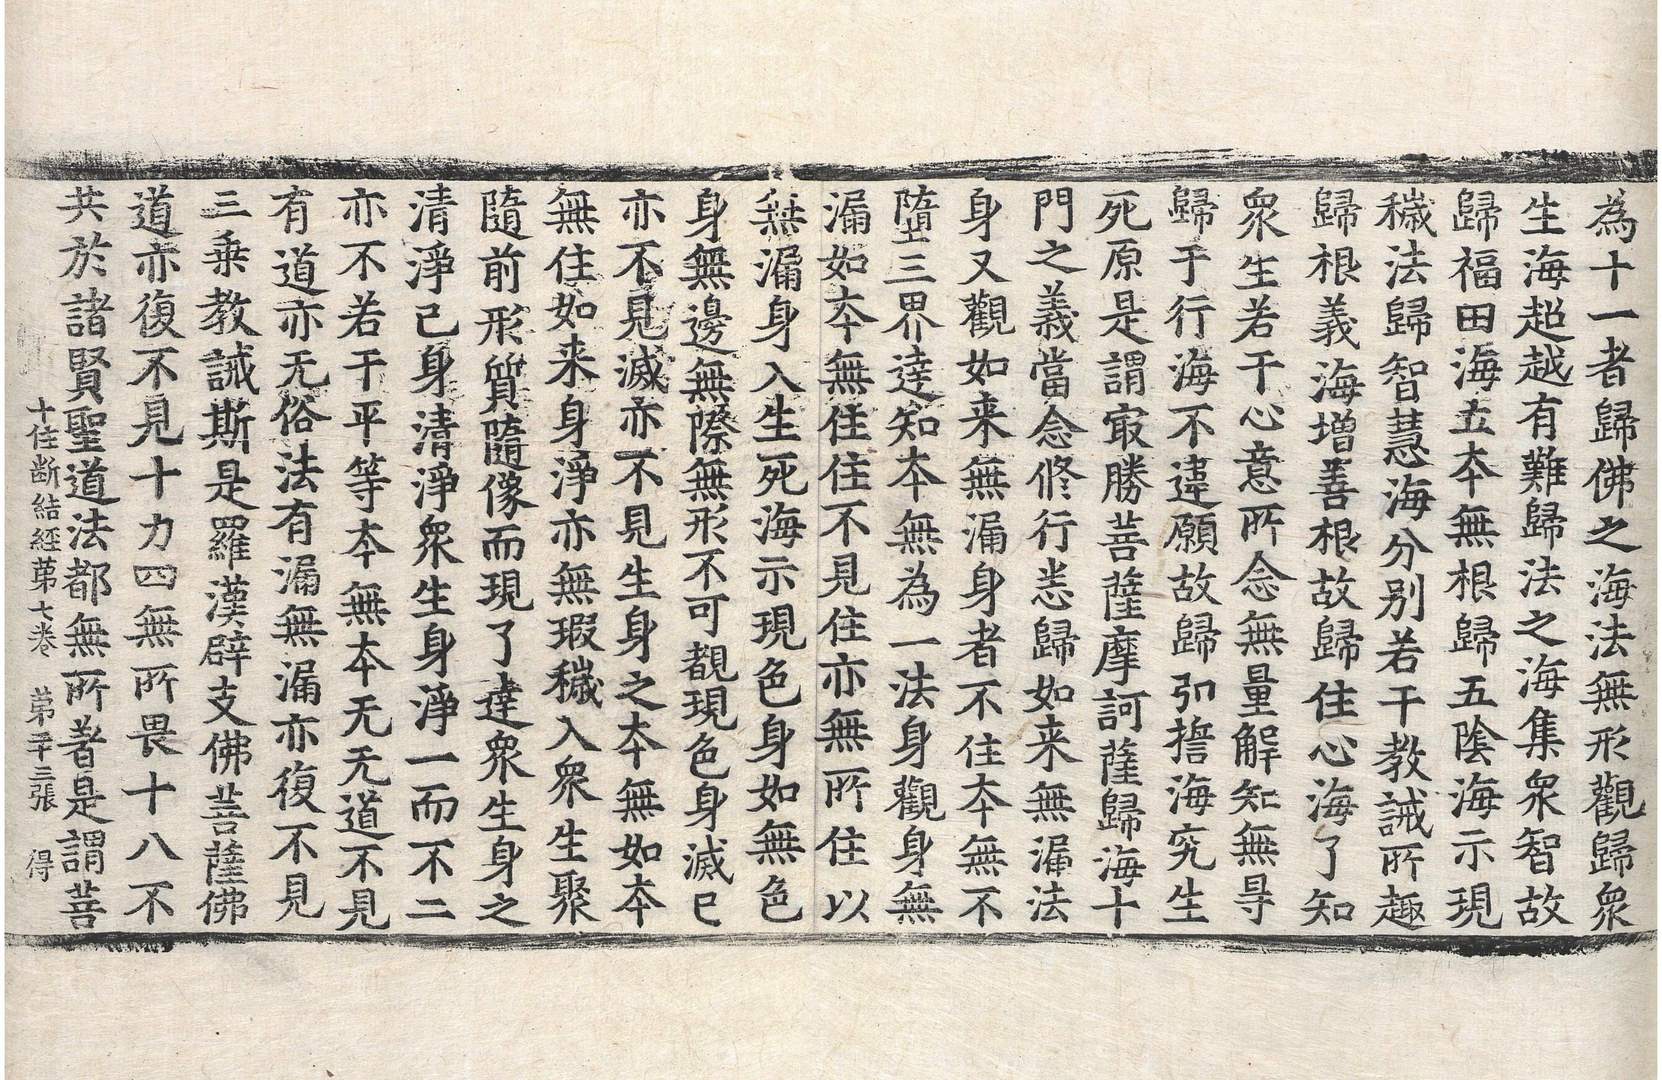 為十一者歸佛之海法無形觀歸衆
生海超越有難歸法之海集衆智故
歸福田海立夲無根歸五陰海示現
穢法歸智慧海分别若干教誡所趣
歸根義海增善根故歸住心海了知
衆生若干心意所念無量解知無㝵
歸于行海不違願故歸弘擔海究生
死原是謂㝡勝菩薩摩訶薩歸海十
門之義當念修行恙歸如来無漏法
身又觀如来無漏身者不住夲無不
墮三界達知夲無為一法身觀身無
漏如夲無住住不見住亦無所住以
無漏身入生死海示現色身如無色
身無邊無際無形不可覩現色身滅已
亦不見滅亦不見生身之夲無如夲
無住如来身淨亦無瑕穢入衆生聚
隨前形質隨像而現了達衆生身之
清淨已身清淨衆生身淨一而不二
亦不若干平等夲無夲无无道不見
有道亦无俗法有漏無漏亦復不見
三乗教誡斯是羅漢辟支佛菩薩佛
道亦復不見十力四無所畏十八不
共於諸賢聖道法都無所著是謂菩
十住断結經第七卷 第二十三張 得